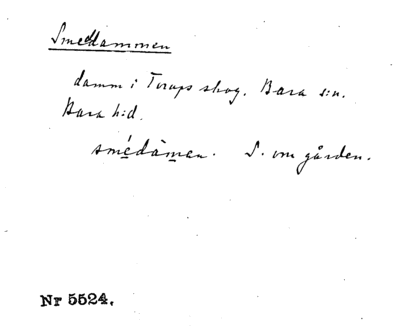 Smeddammen
damm i Torups skog. Bara s:n.
Bara h:d.
smédàmen. S. om gården.
Nr 5524.